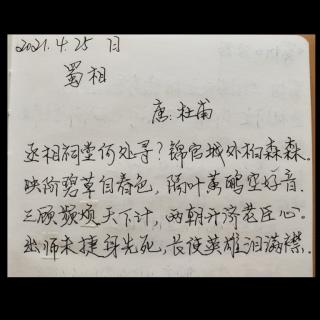 2021.4.25 日
蜀相
唐:杜甫
丞相祠堂何处寻?锦官城外柏森森.
映阶碧草自春色,隔叶黄鹂空好音.
三顾频烦天下计,两朝开济老臣心.
出师未捷身先死,长使英雄泪满襟.